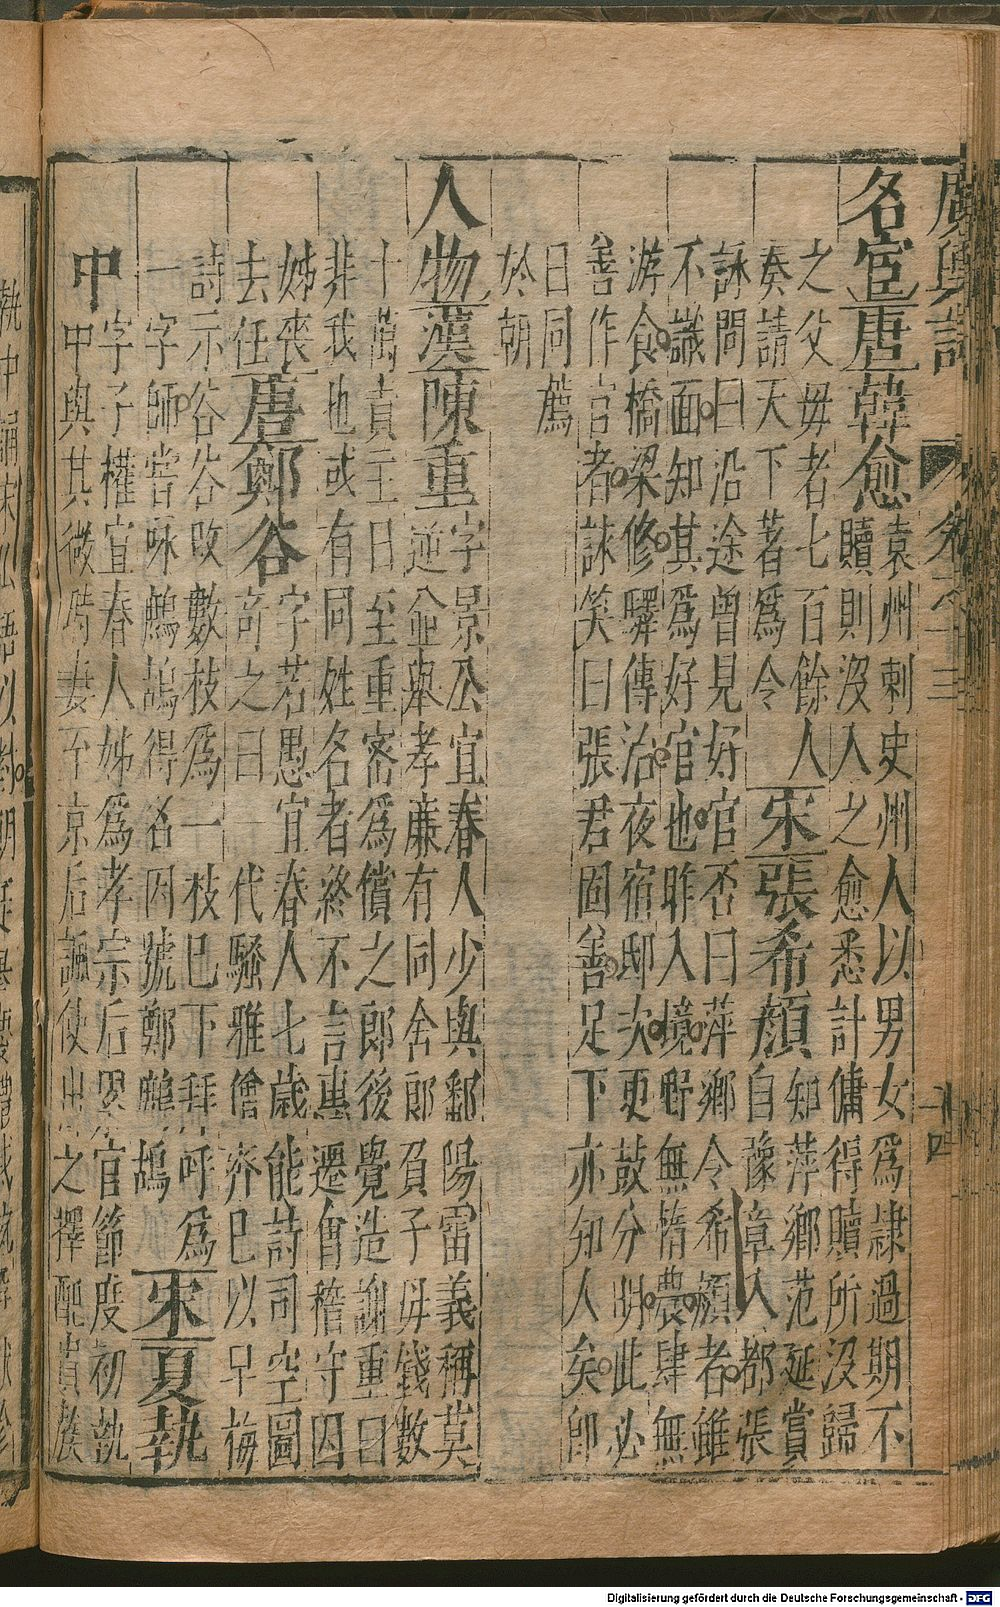 廣輿記 卷之十三 十四
名宦唐韓愈
袁州刺史州人以男女爲隷過期不
贖則沒入之愈悉計傭得贖所沒歸
之父母者七百餘人
宋張希顔
知萍鄉范延賞
奏請天下著爲令
自豫章入都張
詠問曰沿途曾見好官否曰萍鄉令希顔者雖
不識面知其爲好官也昨入境野無惰農肆無
游食橋梁修驛傳治夜宿邸次更鼓分明此必
善作官者詠笑曰張君固善足下亦知人矣卽
日同薦
於朝
人物漢陳重
字景公宜春人少與鄱陽雷義稱莫
逆並舉孝廉有同舍郎負子母錢數
十萬責主日至重密爲償之郎後覺造謝重曰
非我也或有同姓名者終不言惠遷會稽守因
姊喪
去任
唐鄭谷
字若愚宜春人七歲能詩司空圖
奇之曰一代騷雅僧齊巳以早梅
詩示谷谷改數枝爲一枝巳下拜呼爲
一字師嘗咏鷓鴣得名因號鄭鷓鴣
宋夏執
中
字子權宜春人姊爲孝宗后累官節度初執
中與其微時妻至京后諷使出之擇配貴族
執中誦宋弘語以對
Digitalisierung gefördert durch die Deutsche Forschungsgemeinschaft - DFG